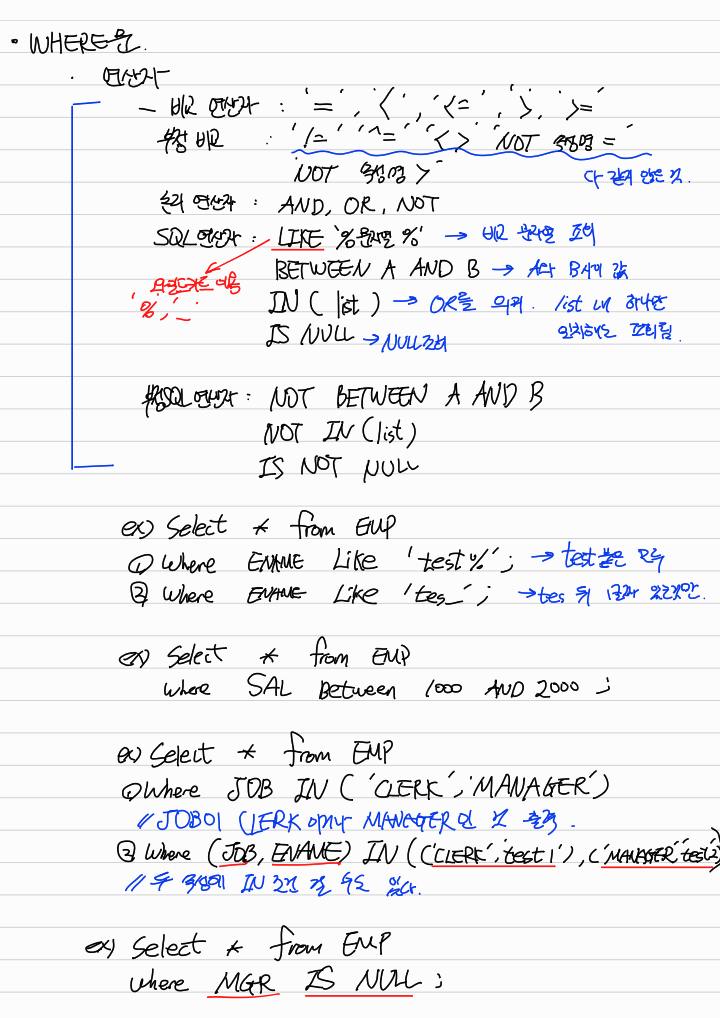 · WHERE문.
· 연산자
- 비교 연산자 : '=', '<', '<=', '>', '>='
부정 비교 : '!=' '^=' '<>' 'NOT 속성명 ='
'NOT 속성명 >'
다 같지 않은 것.
논리 연산자 : AND, OR, NOT
SQL연산자 : LIKE '%문자열%' → 비교 문자열 조회
와일드카드 이용
'%', '_'
BETWEEN A AND B → A와 B사이 값
IN ( list ) → OR를 의미. list 내 하나만
일치해도 조회됨.
IS NULL → NULL조회
부정SQL연산자 : NOT BETWEEN A AND B
NOT IN (list)
IS NOT NULL
ex) Select * from EMP
① Where ENAME Like 'test%'; → test붙은 모두
② Where ENAME Like 'tes_'; → tes 뒤 1글자 있는것만.
ex) Select * from EMP
where SAL Between 1000 AND 2000 ;
ex) Select * from EMP
① Where JOB IN ( 'CLERK', 'MANAGER')
// JOB이 CLERK 이거나 MANAGER 인 것 출력.
② Where (JOB, ENAME) IN (('CLERK', 'test1'), ('MANAGER' 'test2'))
// 두 속성에 IN 조건 걸 수도 있다.
ex) Select * from EMP
where MGR IS NULL ;